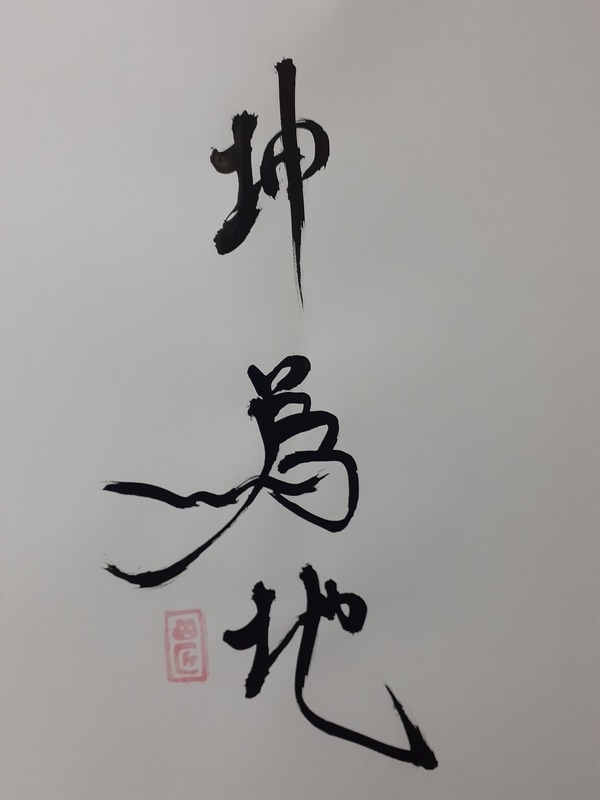 坤為地